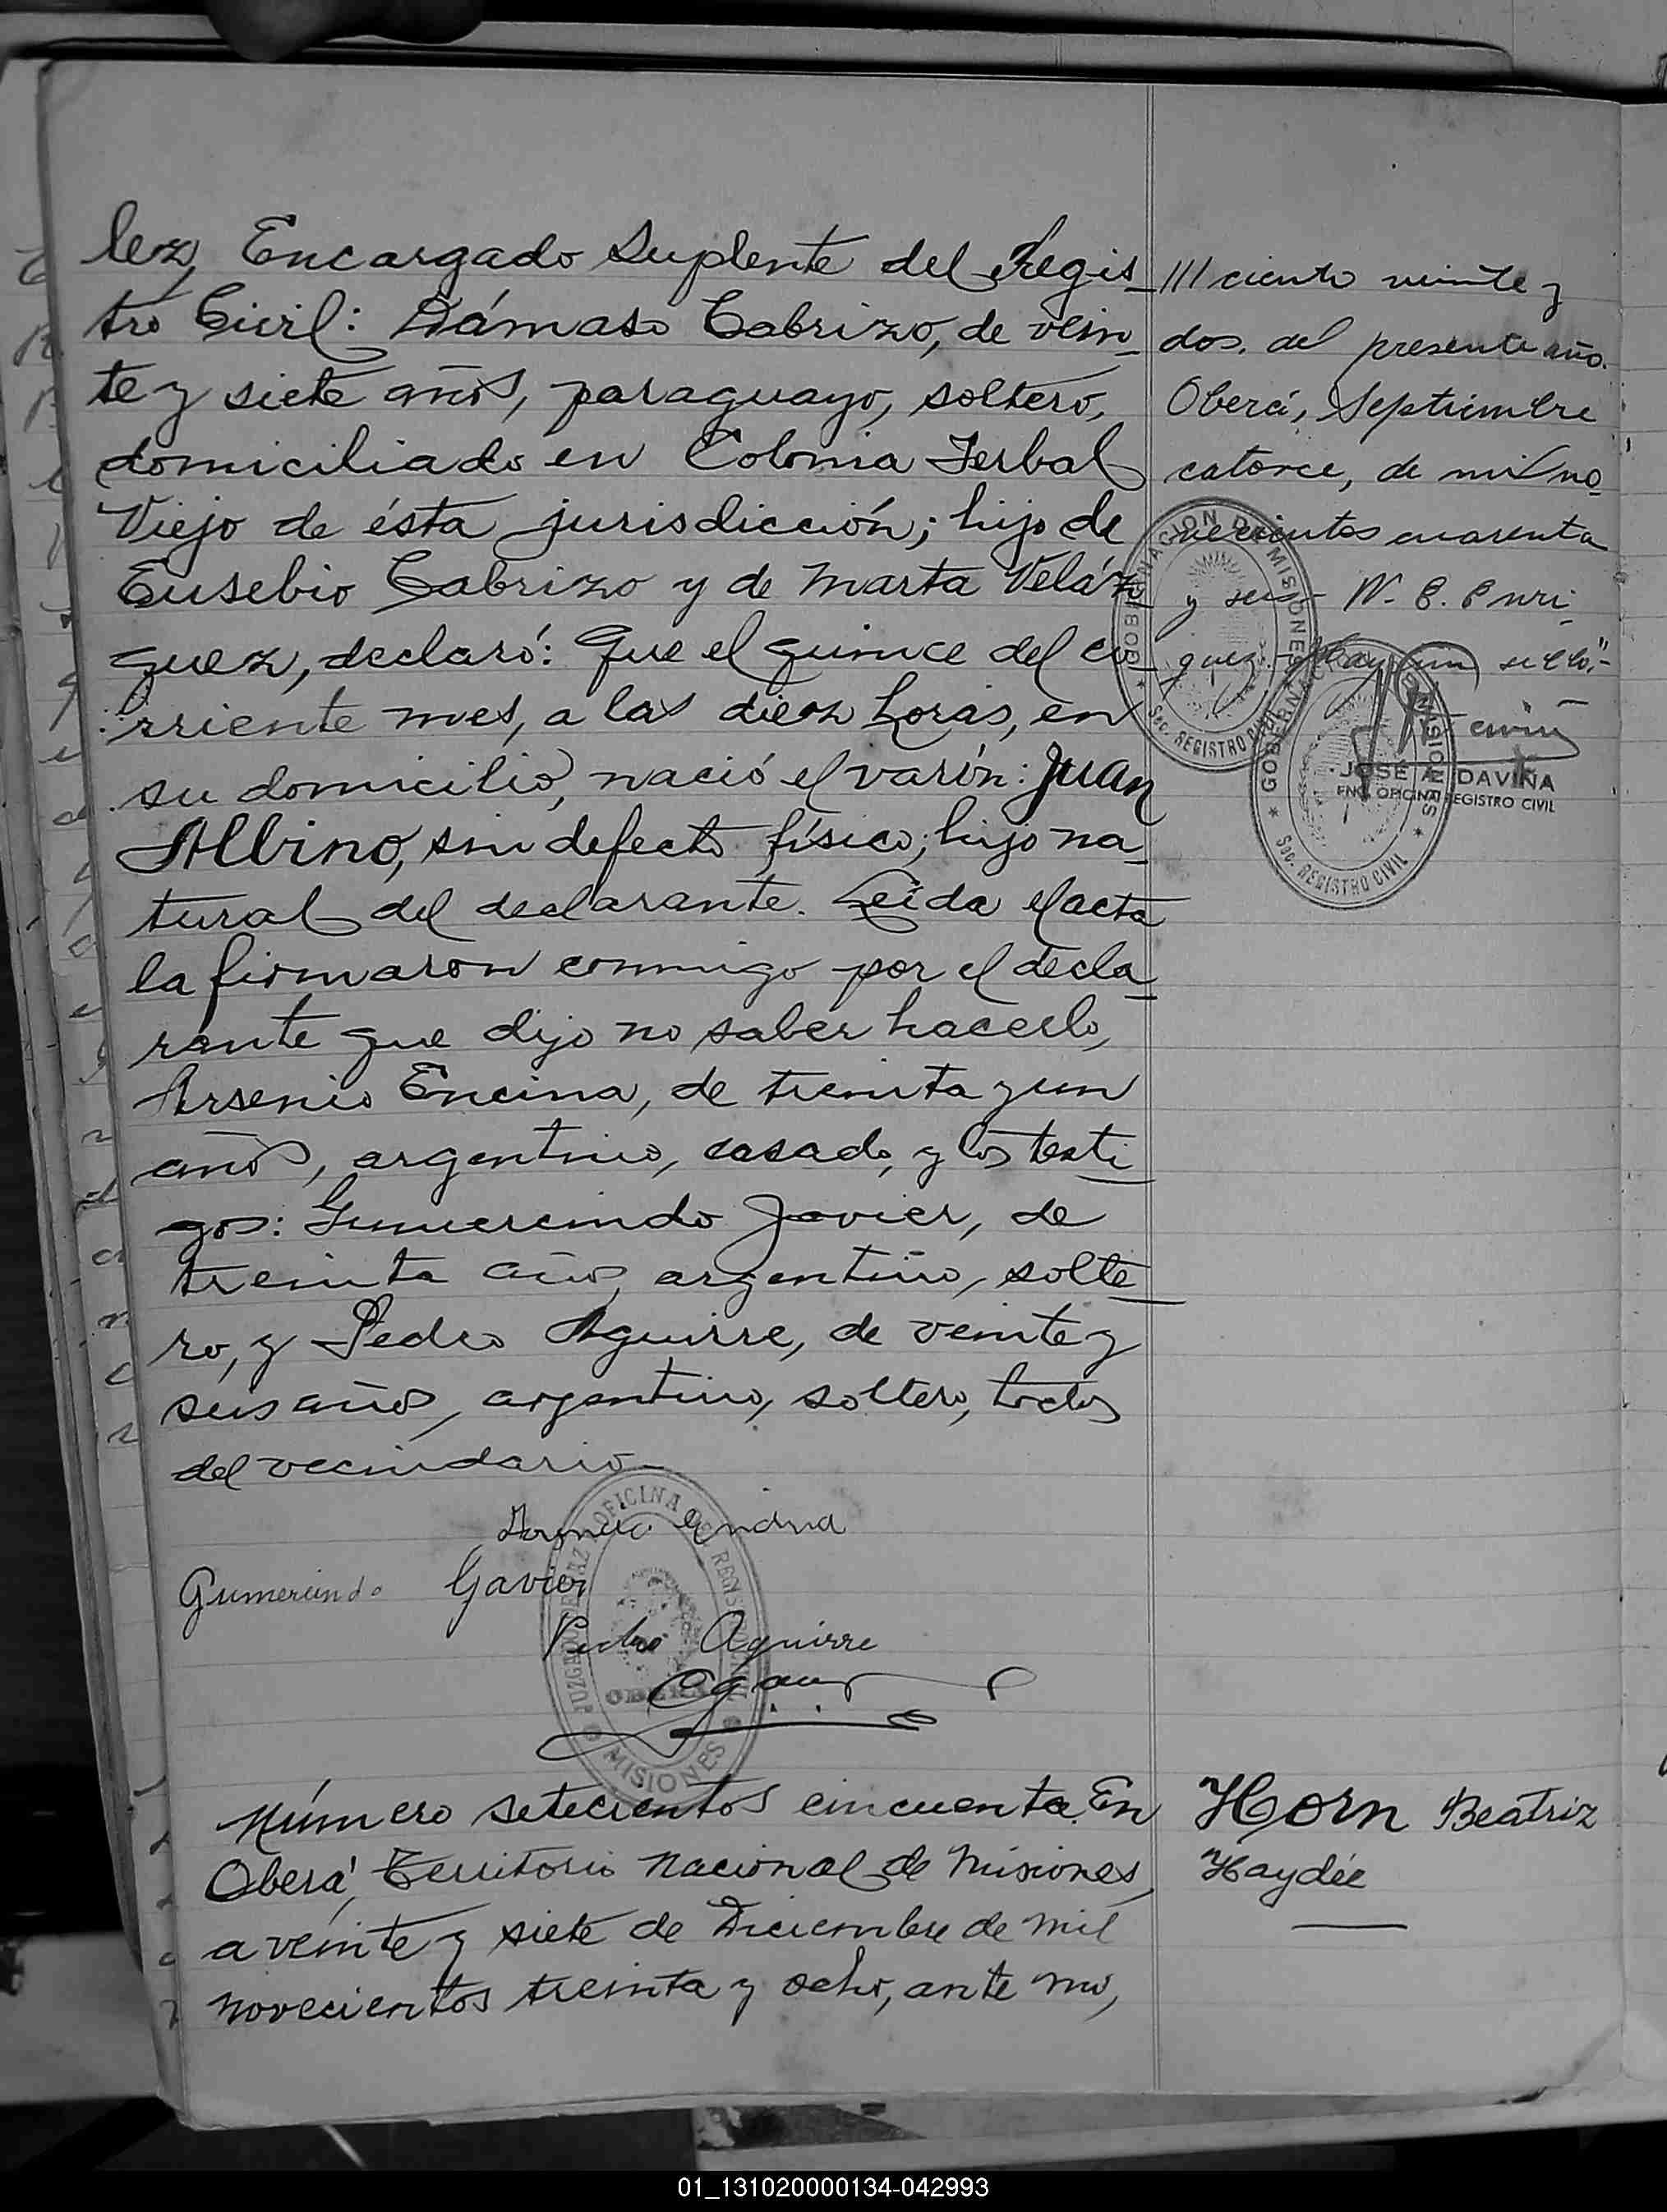 lez, Encargado Suplente del Regis-
tro Civil: Dámaso Cabrizo, de vein-
te y siete años, paraguayo, soltero,
domiciliado en Colonia Yerbal
Viejo de ésta jurisdicción; hijo de
Eusebio Cabrizo y de Marta Veláz-
quez, declaró: Que el quince del co-
rriente mes, a las diez horas, en
su domicilio, nació el varón: Juan
Albino, sin defecto físico; hijo na-
tural del declarante. Leída el acta
la firmaron conmigo por el decla-
rante que dijo no saber hacerlo,
Arsenio Encina, de treinta y un
años, argentino, casado, y los testi-
gos: Gumercindo Javier, de
treinta años, argentino, solte-
ro, y Pedro Aguirre, de veinte y
seis años, argentino, soltero, todos
del vecindario.-
Gumercindo Gavier
Pedro Aguirre
JUZGADO DE PAZ Y OFICINA DEL REGISTRO CIVIL
OBERA
MISIONES
Número setecientos cincuenta. En
Oberá, Territorio Nacional de Misiones,
a veinte y siete de Diciembre de mil
novecientos treinta y ocho, ante mi,
/// ciento veinte y
dos. del presente año.
Oberá, Septiembre
catorce, de mil no-
vecientos cuarenta
y seis.-
GOBERNACION DE MISIONES
Sec. REGISTRO CIVIL
GOBERNACION DE MISIONES
Sec. REGISTRO CIVIL
JOSÉ A. DAVIÑA
ENC. OFICINA REGISTRO CIVIL
Horn Beatriz
Haydée
01_131020000134-042993